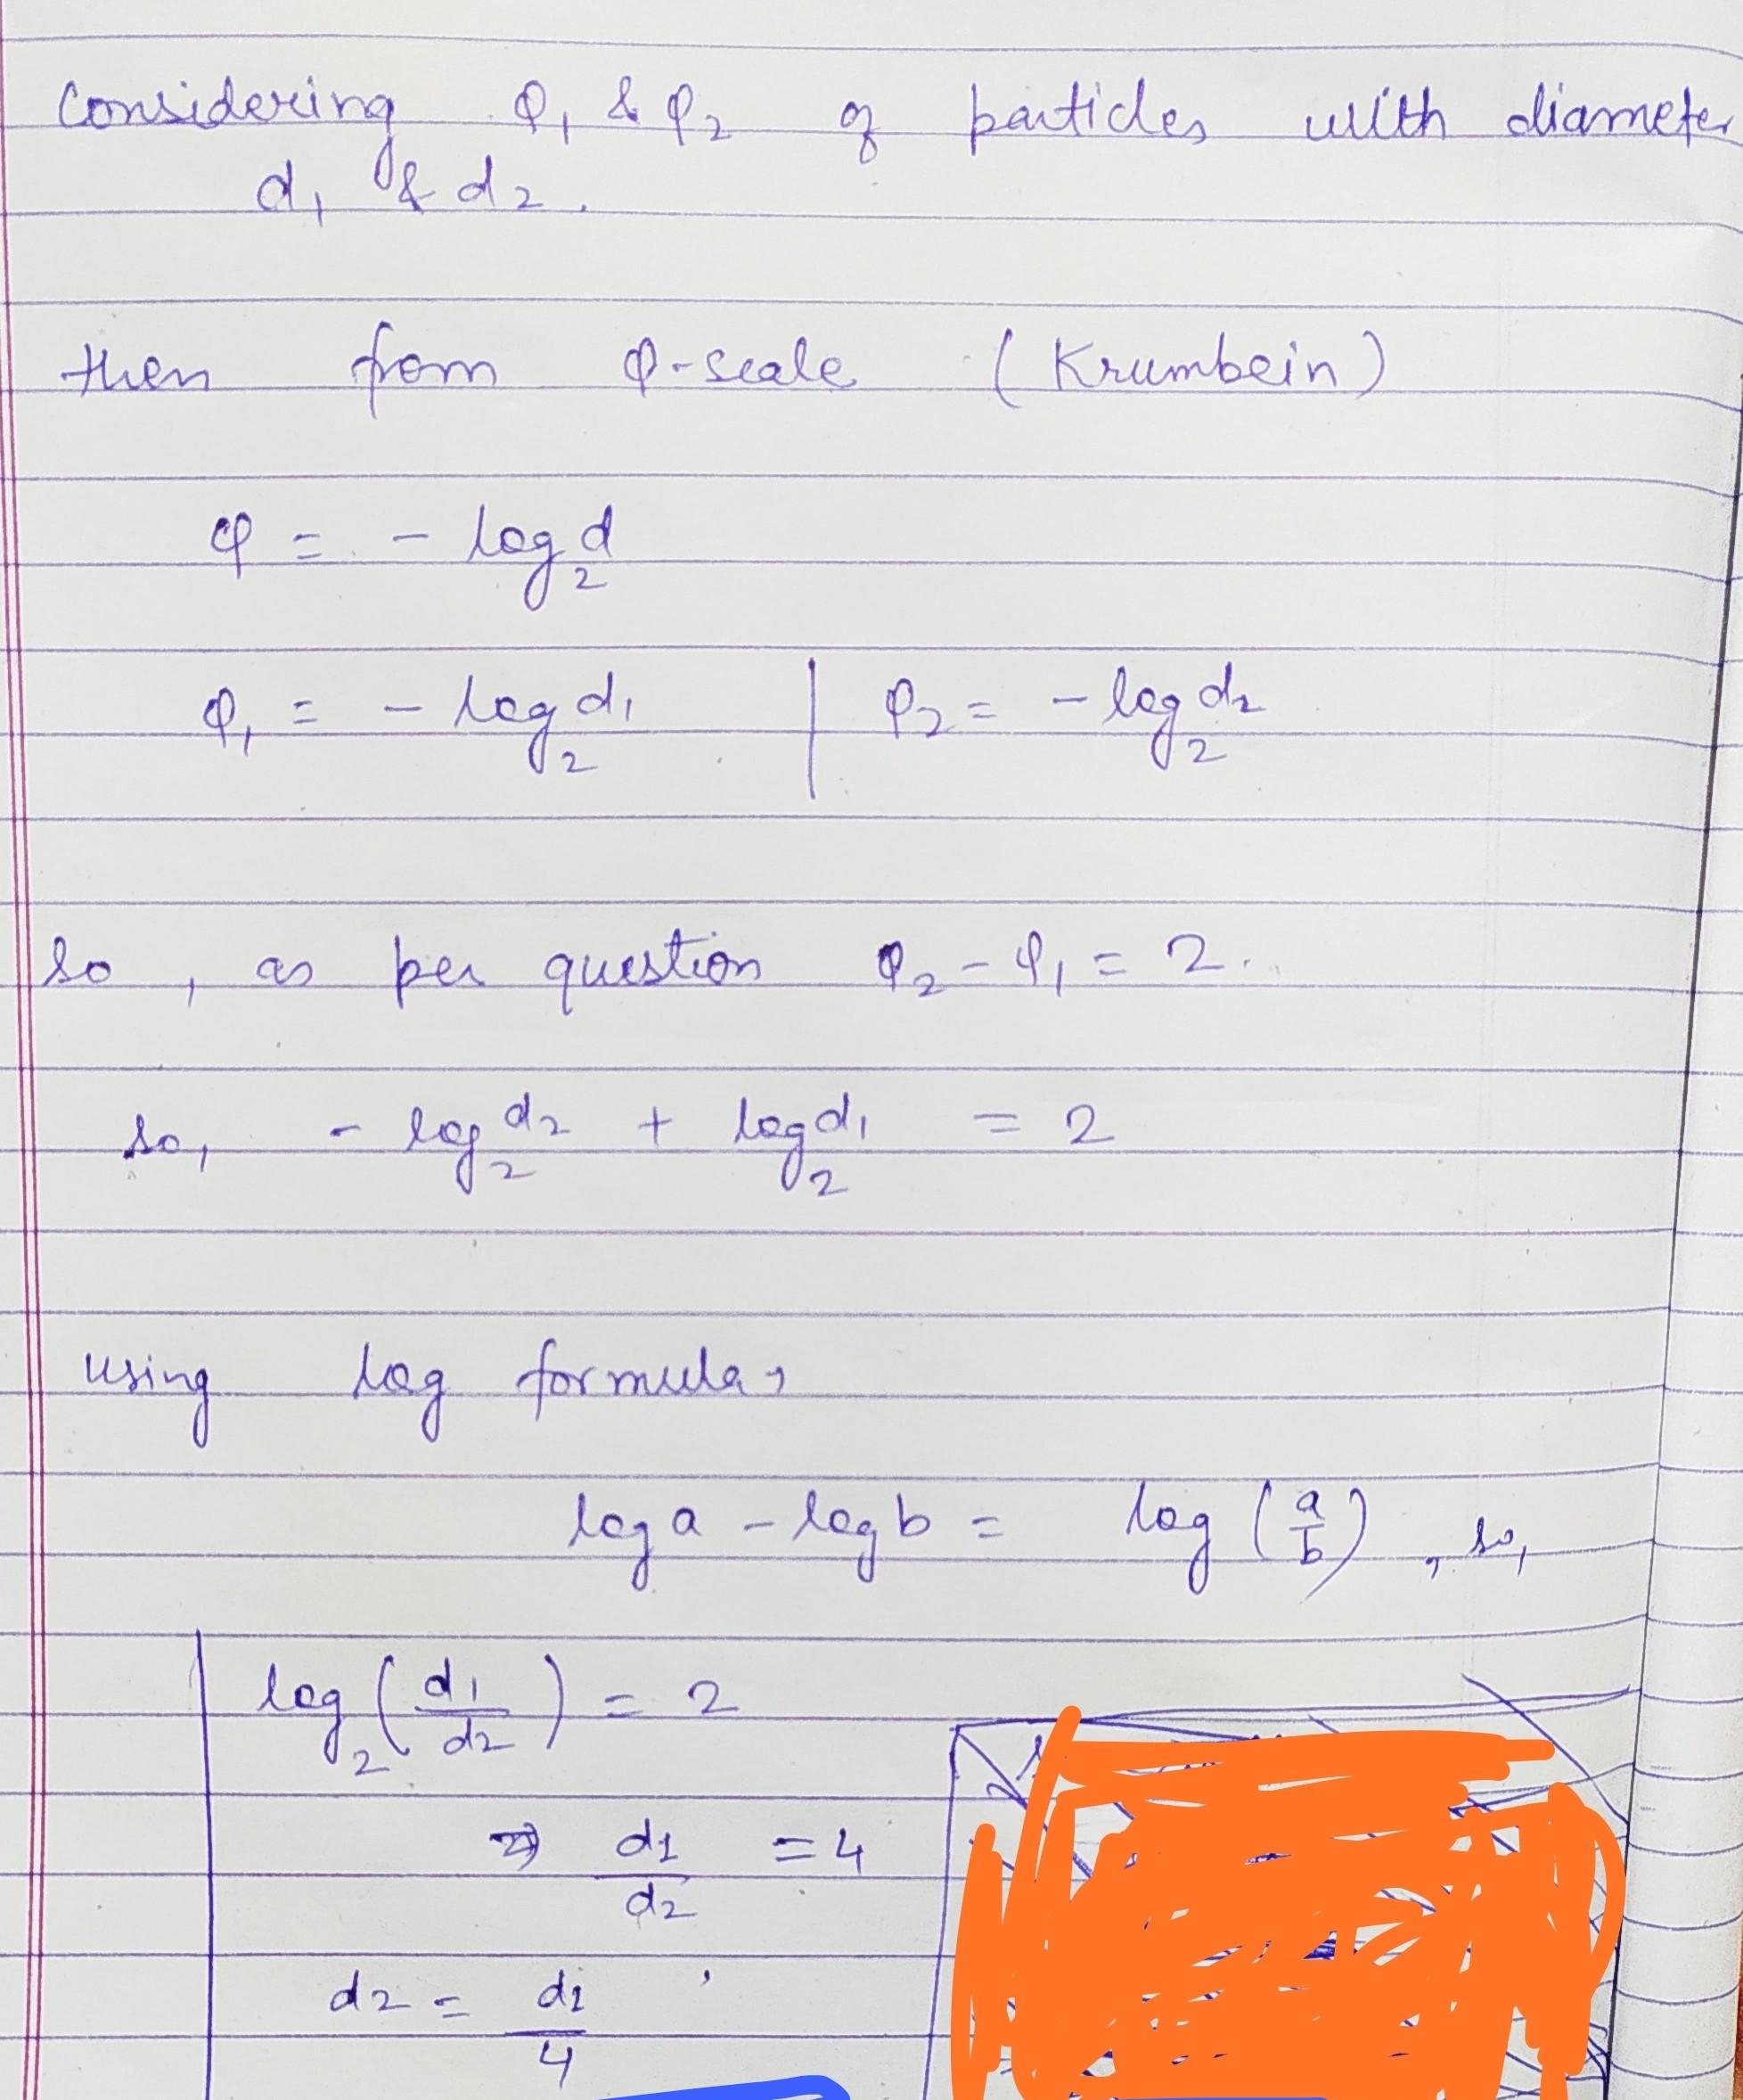 Considering φ₁ & φ₂ of particles with diameter
d₁ & d₂.
then from φ-scale (Krumbein)
φ = - log₂ d
φ₁ = - log₂ d₁ | φ₂ = - log₂ d₂
so, as per question φ₂ - φ₁ = 2.
so, - log₂ d₂ + log₂ d₁ = 2
using log formula,
log a - log b = log (a/b), so,
log₂ (d₁/d₂) = 2
⇒ d₁/d₂ = 4
d₂ = d₁/4